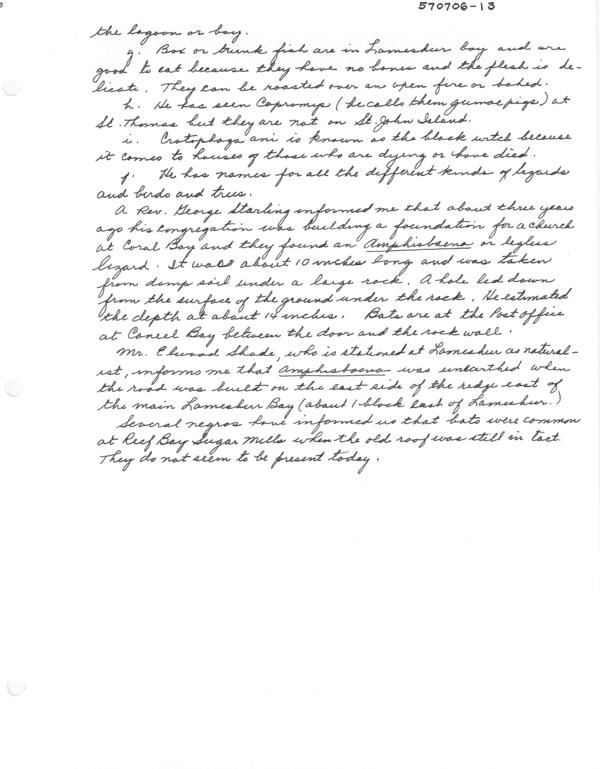 570706-13
the lagoon or bay.
g. Box or trunk fish are in Lameshur bay and are
good to eat because they have no bones and the flesh is de-
licate. They can be roasted over an open fire or baked.
h. He has seen Capromys (he calls them guinea pigs) at
St. Thomas but they are not on St. John Island.
i. Crotophaga ani is known as the black witch because
it comes to houses of those who are dyeing or have died.
j. He has names for all the different kinds of lizards
and birds and trees.
A Rev. George Starling informed me that about three years
ago his congregation was building a foundation for a church
at Coral Bay and they found an Amphisbaena or legless
lizard. It was about 10 inches long and was taken
from damp soil under a large rock. A hole led down
from the surface of the ground under the rock. He estimated
the depth at about 14 inches. Bats are at the Post office
at Caneel Bay between the door and the rock wall.
Mr. Elwood Shade, who is stationed at Lameshur as natural-
ist, informs me that Amphisbaena was unearthed when
the road was built on the east side of the ridge east of
the main Lameshur Bay (about 1 block east of Lameshur.)
Several negros have informed us that bats were common
at Reef Bay Sugar Mills when the old roof was still in tact.
They do not seem to be present today.